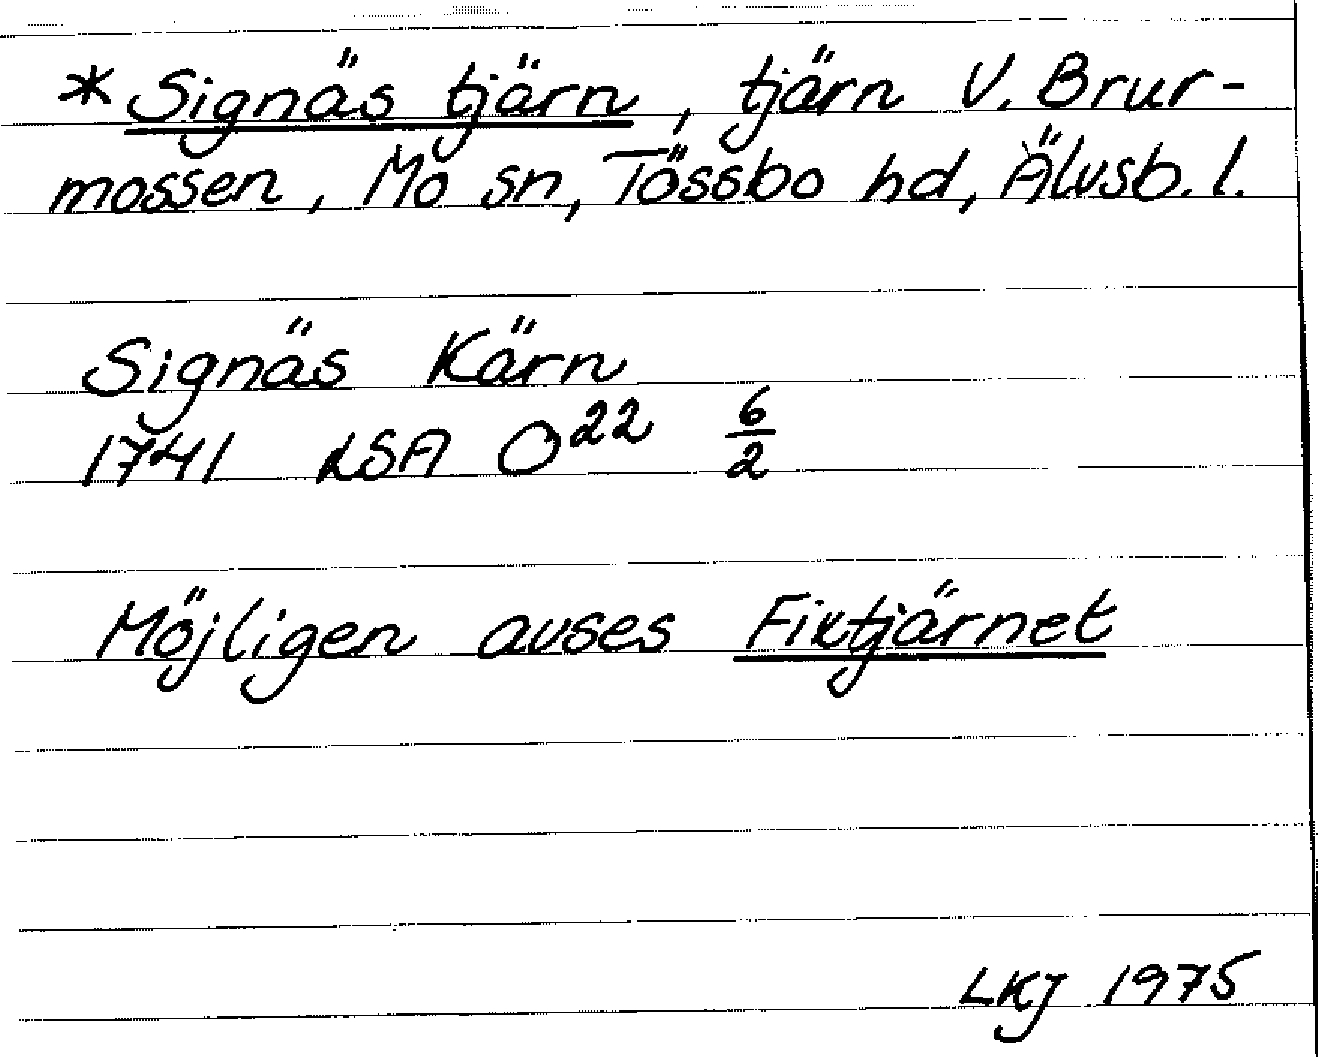 * Signäs tjärn, tjärn V. Brur-
mossen, Mo sn, Tössbo hd, Älvsb. l.
Signäs Kärn
1741 LSA O²² 6/2
Möjligen avses Fixtjärnet
LKJ 1975